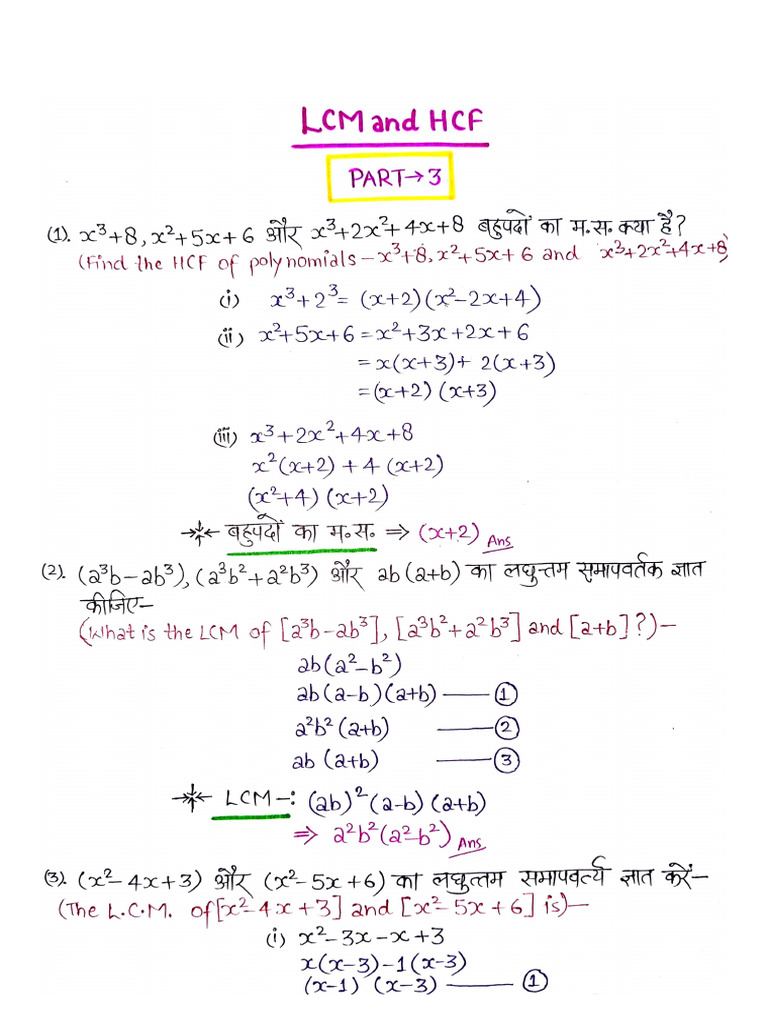 LCM and HCF
PART→3
(1). x³+8, x²+5x+6 और x³+2x²+4x+8 बहुपदों का म.स. क्या है?
(Find the HCF of polynomials - x³+8, x²+5x+6 and x³+2x²+4x+8)
(i) x³+2³= (x+2)(x²-2x+4)
(ii) x²+5x+6 = x²+3x+2x+6
= x(x+3)+ 2(x+3)
= (x+2) (x+3)
(iii) x³+2x²+4x+8
x²(x+2) + 4 (x+2)
(x²+4) (x+2)
→← बहुपदों का म.स. ⇒ (x+2) Ans
(2). (a³b-ab³), (a³b²+a²b³) और ab(a+b) का लघुत्तम समापवर्तक ज्ञात
कीजिए-
(What is the LCM of [a³b-ab³], [a³b²+a²b³] and [a+b]?)-
ab(a²-b²)
ab(a-b)(a+b) —— ①
a²b²(a+b) —— ②
ab (a+b) —— ③
→← LCM -: (ab)²(a-b)(a+b)
⇒ a²b²(a²-b²) Ans
(3). (x²-4x+3) और (x²-5x+6) का लघुत्तम समापवर्त्य ज्ञात करें-
(The L.C.M. of [x²-4x+3] and [x²-5x+6] is)-
(i) x²-3x-x+3
x(x-3)-1(x-3)
(x-1) (x-3) —— ①